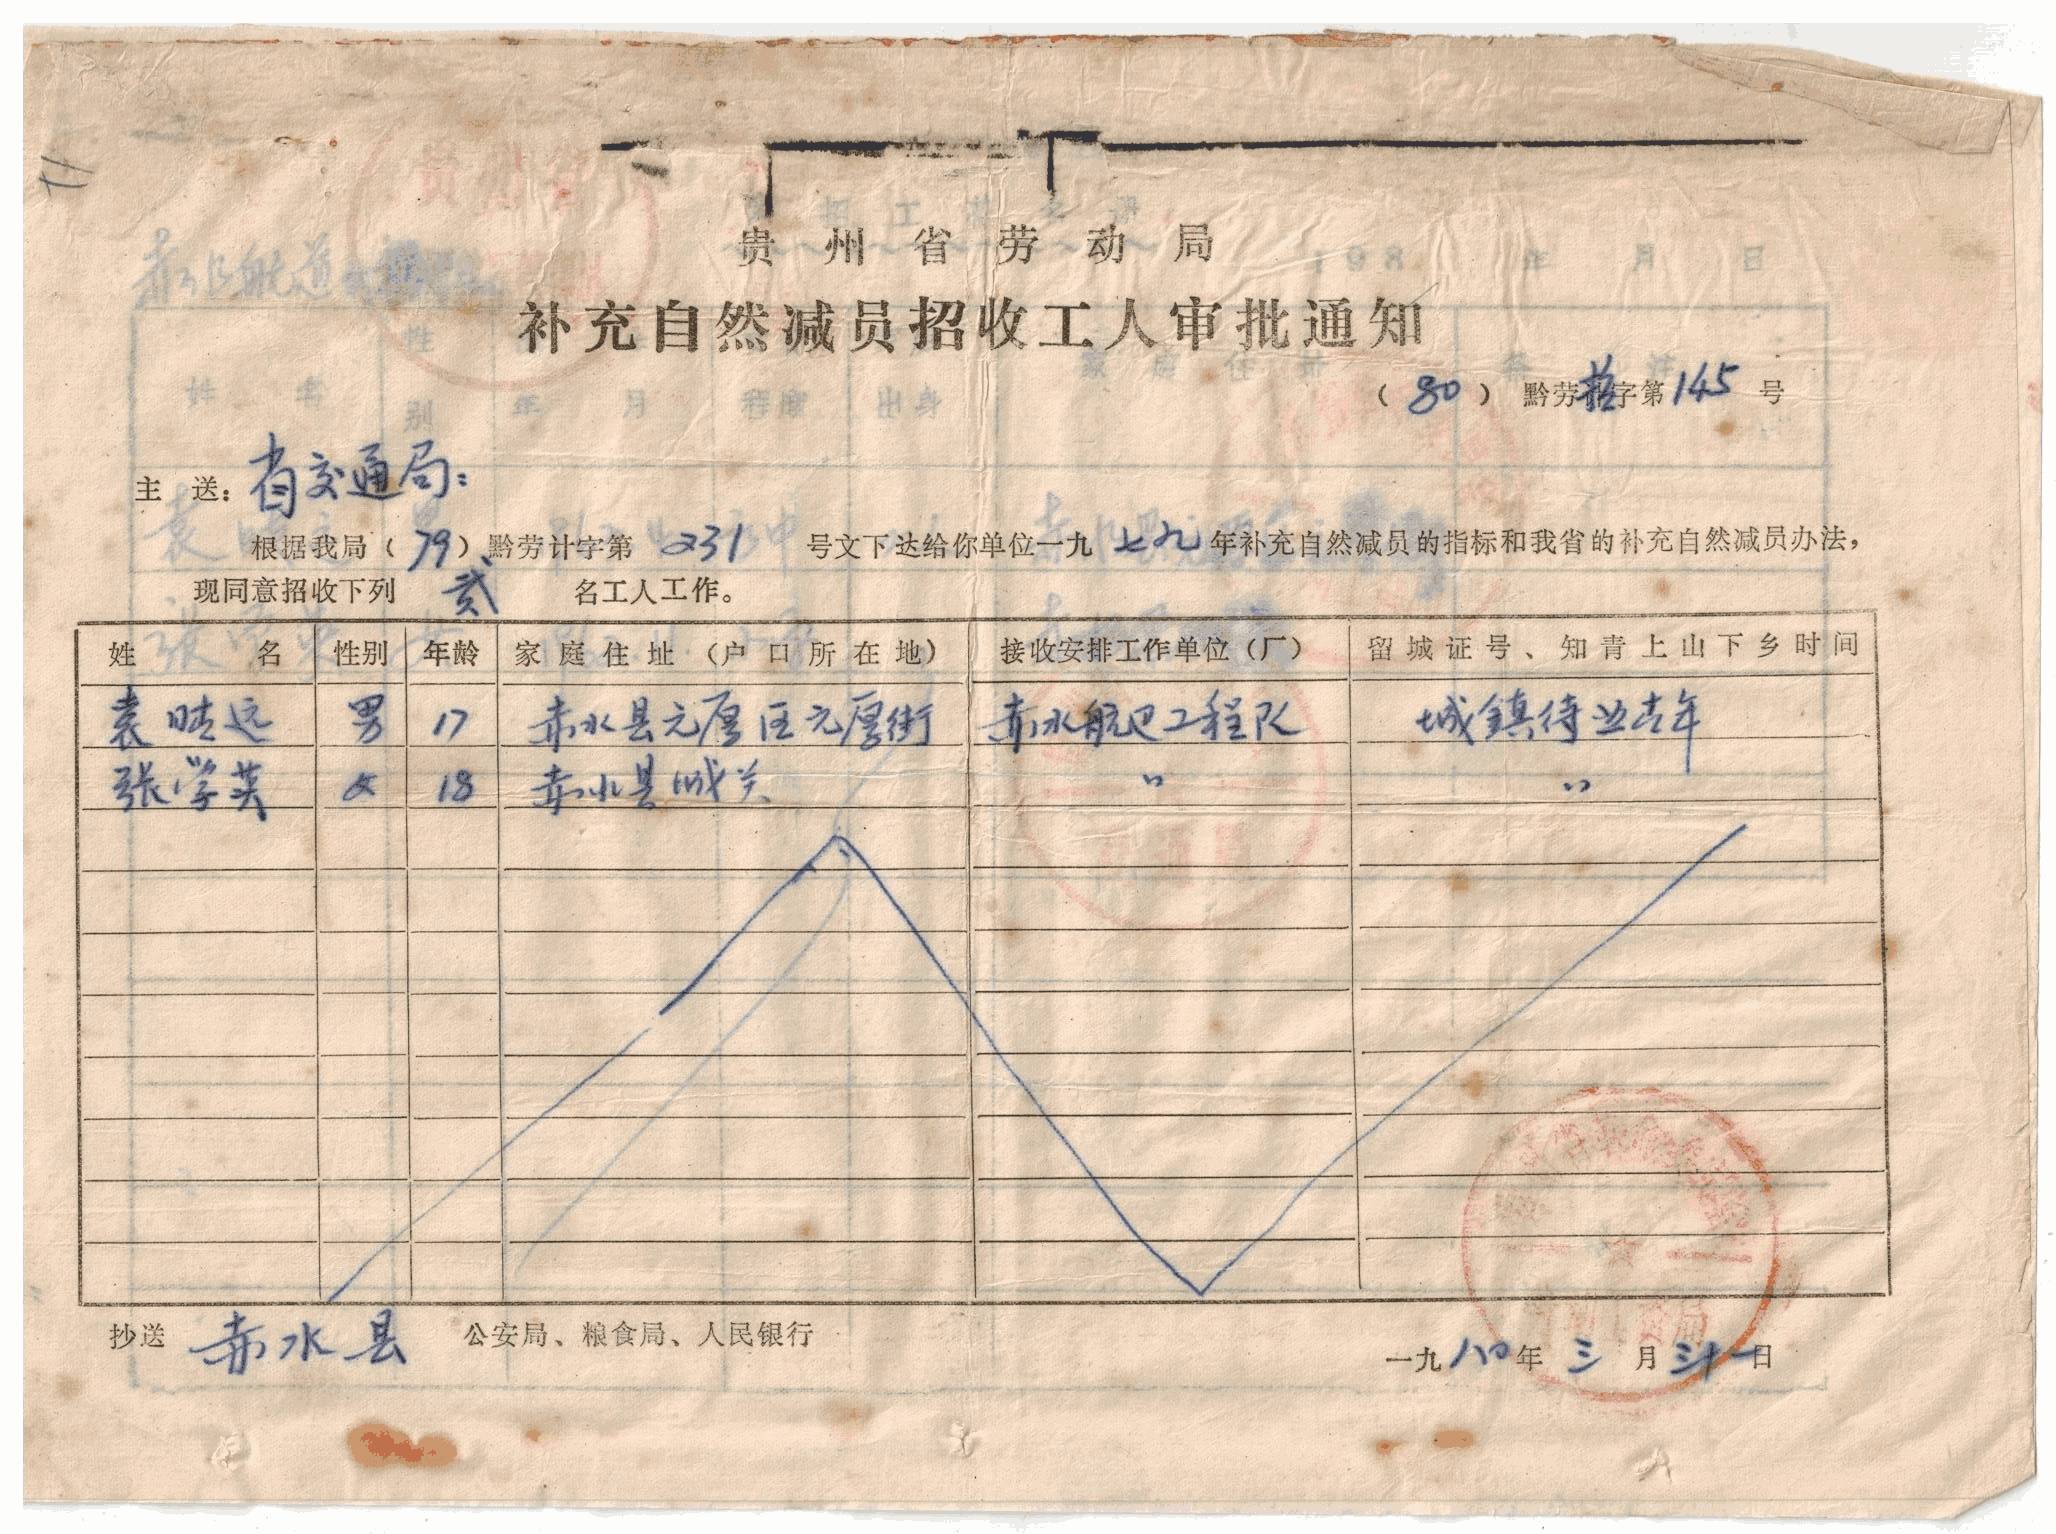 贵州省劳动局
补充自然减员招收工人审批通知
（80）黔劳计字第145号
主送：省交通局：
根据我局（79）黔劳计字第231号文下达给你单位一九七九年补充自然减员的指标和我省的补充自然减员办法，
现同意招收下列贰名工人工作。
姓名 性别 年龄 家庭住址（户口所在地） 接收安排工作单位（厂） 留城证号、知青上山下乡时间
袁 远 男 17 赤水县元厚区元厚街 赤水航 工程队 城鎮待业古年
张学英 女 18 赤水县城关 〃 〃
抄送 赤水县 公安局、粮食局、人民银行
一九八〇年三月三十一日